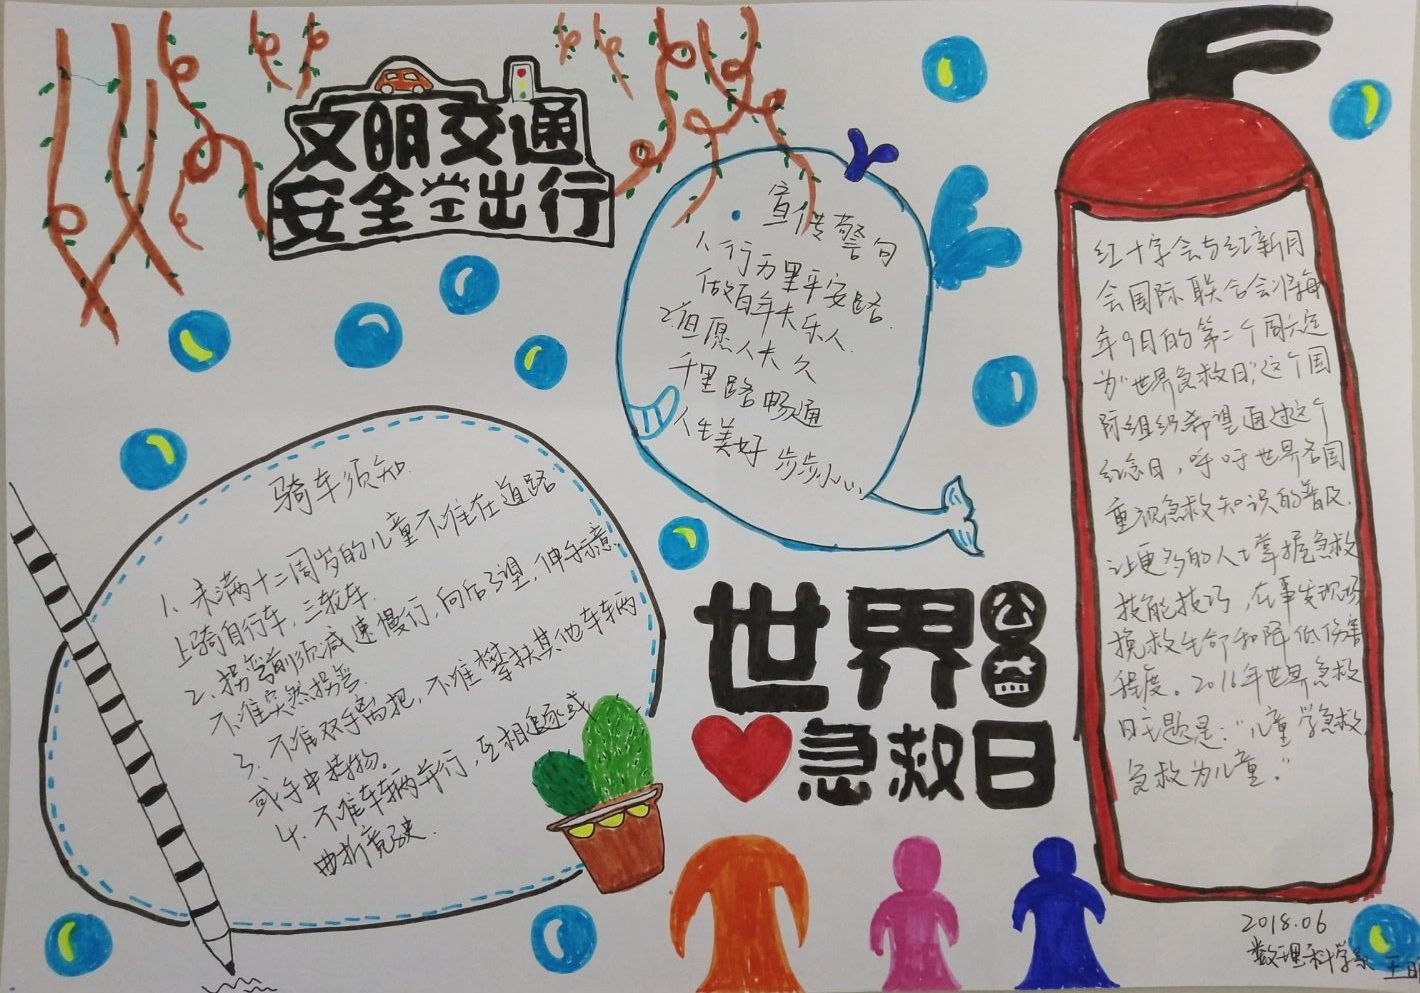 文明交通
安全出行
宣传警句
1、行万里平安路
做百年长乐人.
2、但愿人长久
千里路畅通
人生美好 步步小心
红十字会与红新月
会国际联合会将每
年9月的第二个周六定
为"世界急救日",这个国
际组织希望通过这个
纪念日，呼吁世界各国
重视急救知识的普及.
让更多的人士掌握急救
技能技巧，在事发现场
挽救生命和降低伤害
程度。2016年世界急救
日主题是："儿童学急救,
急救为儿童。"
骑车须知
1、未满十二周岁的儿童不准在道路
上骑自行车，三轮车.
2、拐弯前须减速慢行，向后了望，伸手示意.
不准突然拐弯.
3、不准双手离把，不准攀扶其他车辆
或手中持物。
4、不准车辆并行，互相追逐或
曲折竞驶.
世界公益
急救日
2018.06
数理科学系 王